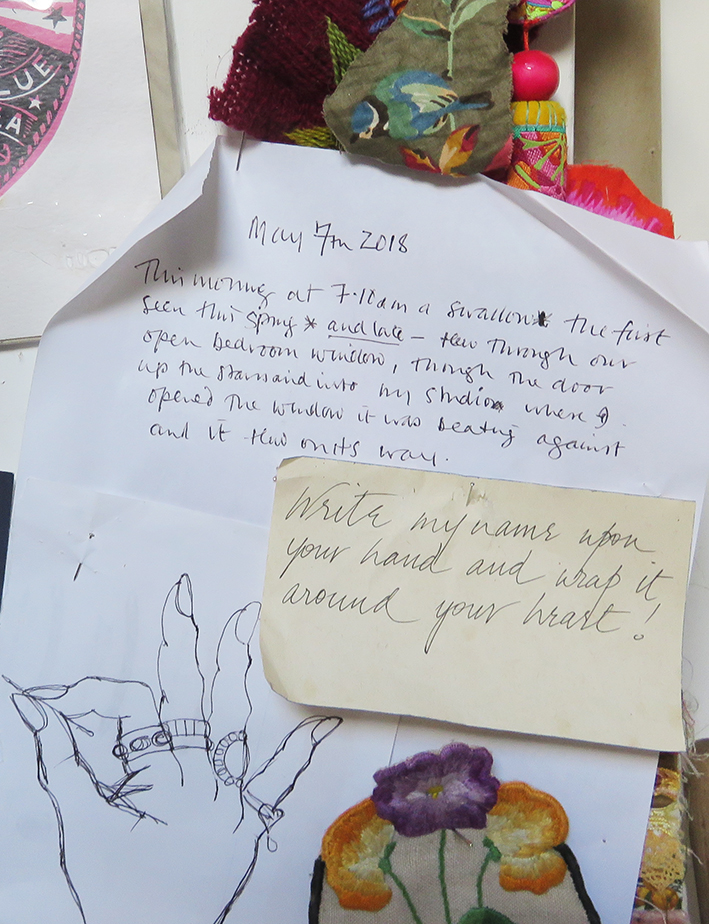 LUE
May 7th 2018
This morning at 7.10am a swallow * the first
seen this spring * and late – flew through our
open bedroom window, though the door
up the stairs and into my studio where I
opened the window it was beating against
and it flew on its way.
Write my name upon
your hand and wrap it
around your heart!